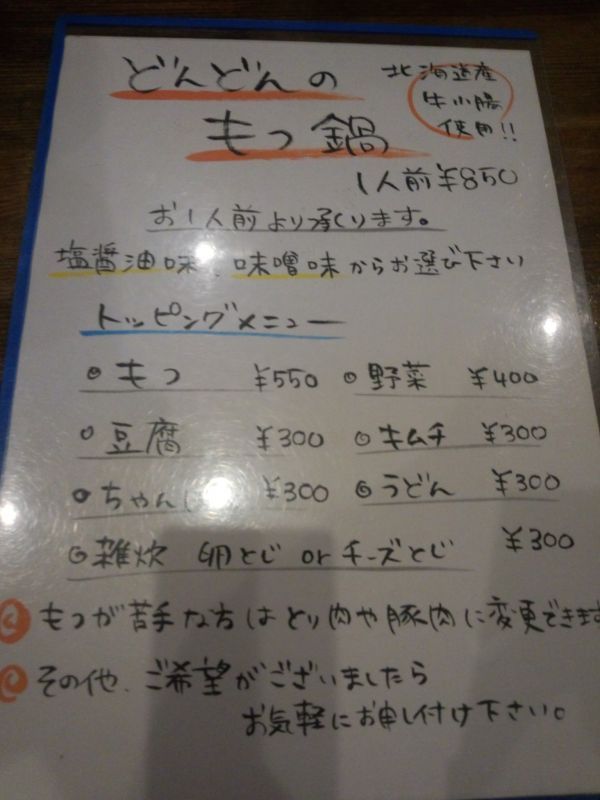 どんどんの
もつ鍋
北海道産
牛小腸
使用!!
1人前¥850
お1人前より承ります。
塩醤油味、味噌味からお選び下さい
トッピングメニュー
◎もつ ¥550 ◎野菜 ¥400
◎豆腐 ¥300 ◎キムチ ¥300
◎ちゃん ¥300 ◎うどん ¥300
◎雑炊 卵とじ or チーズとじ ¥300
もつが苦手な方はとり肉や豚肉に変更できます
その他、ご希望がございましたら
お気軽にお申し付け下さい。